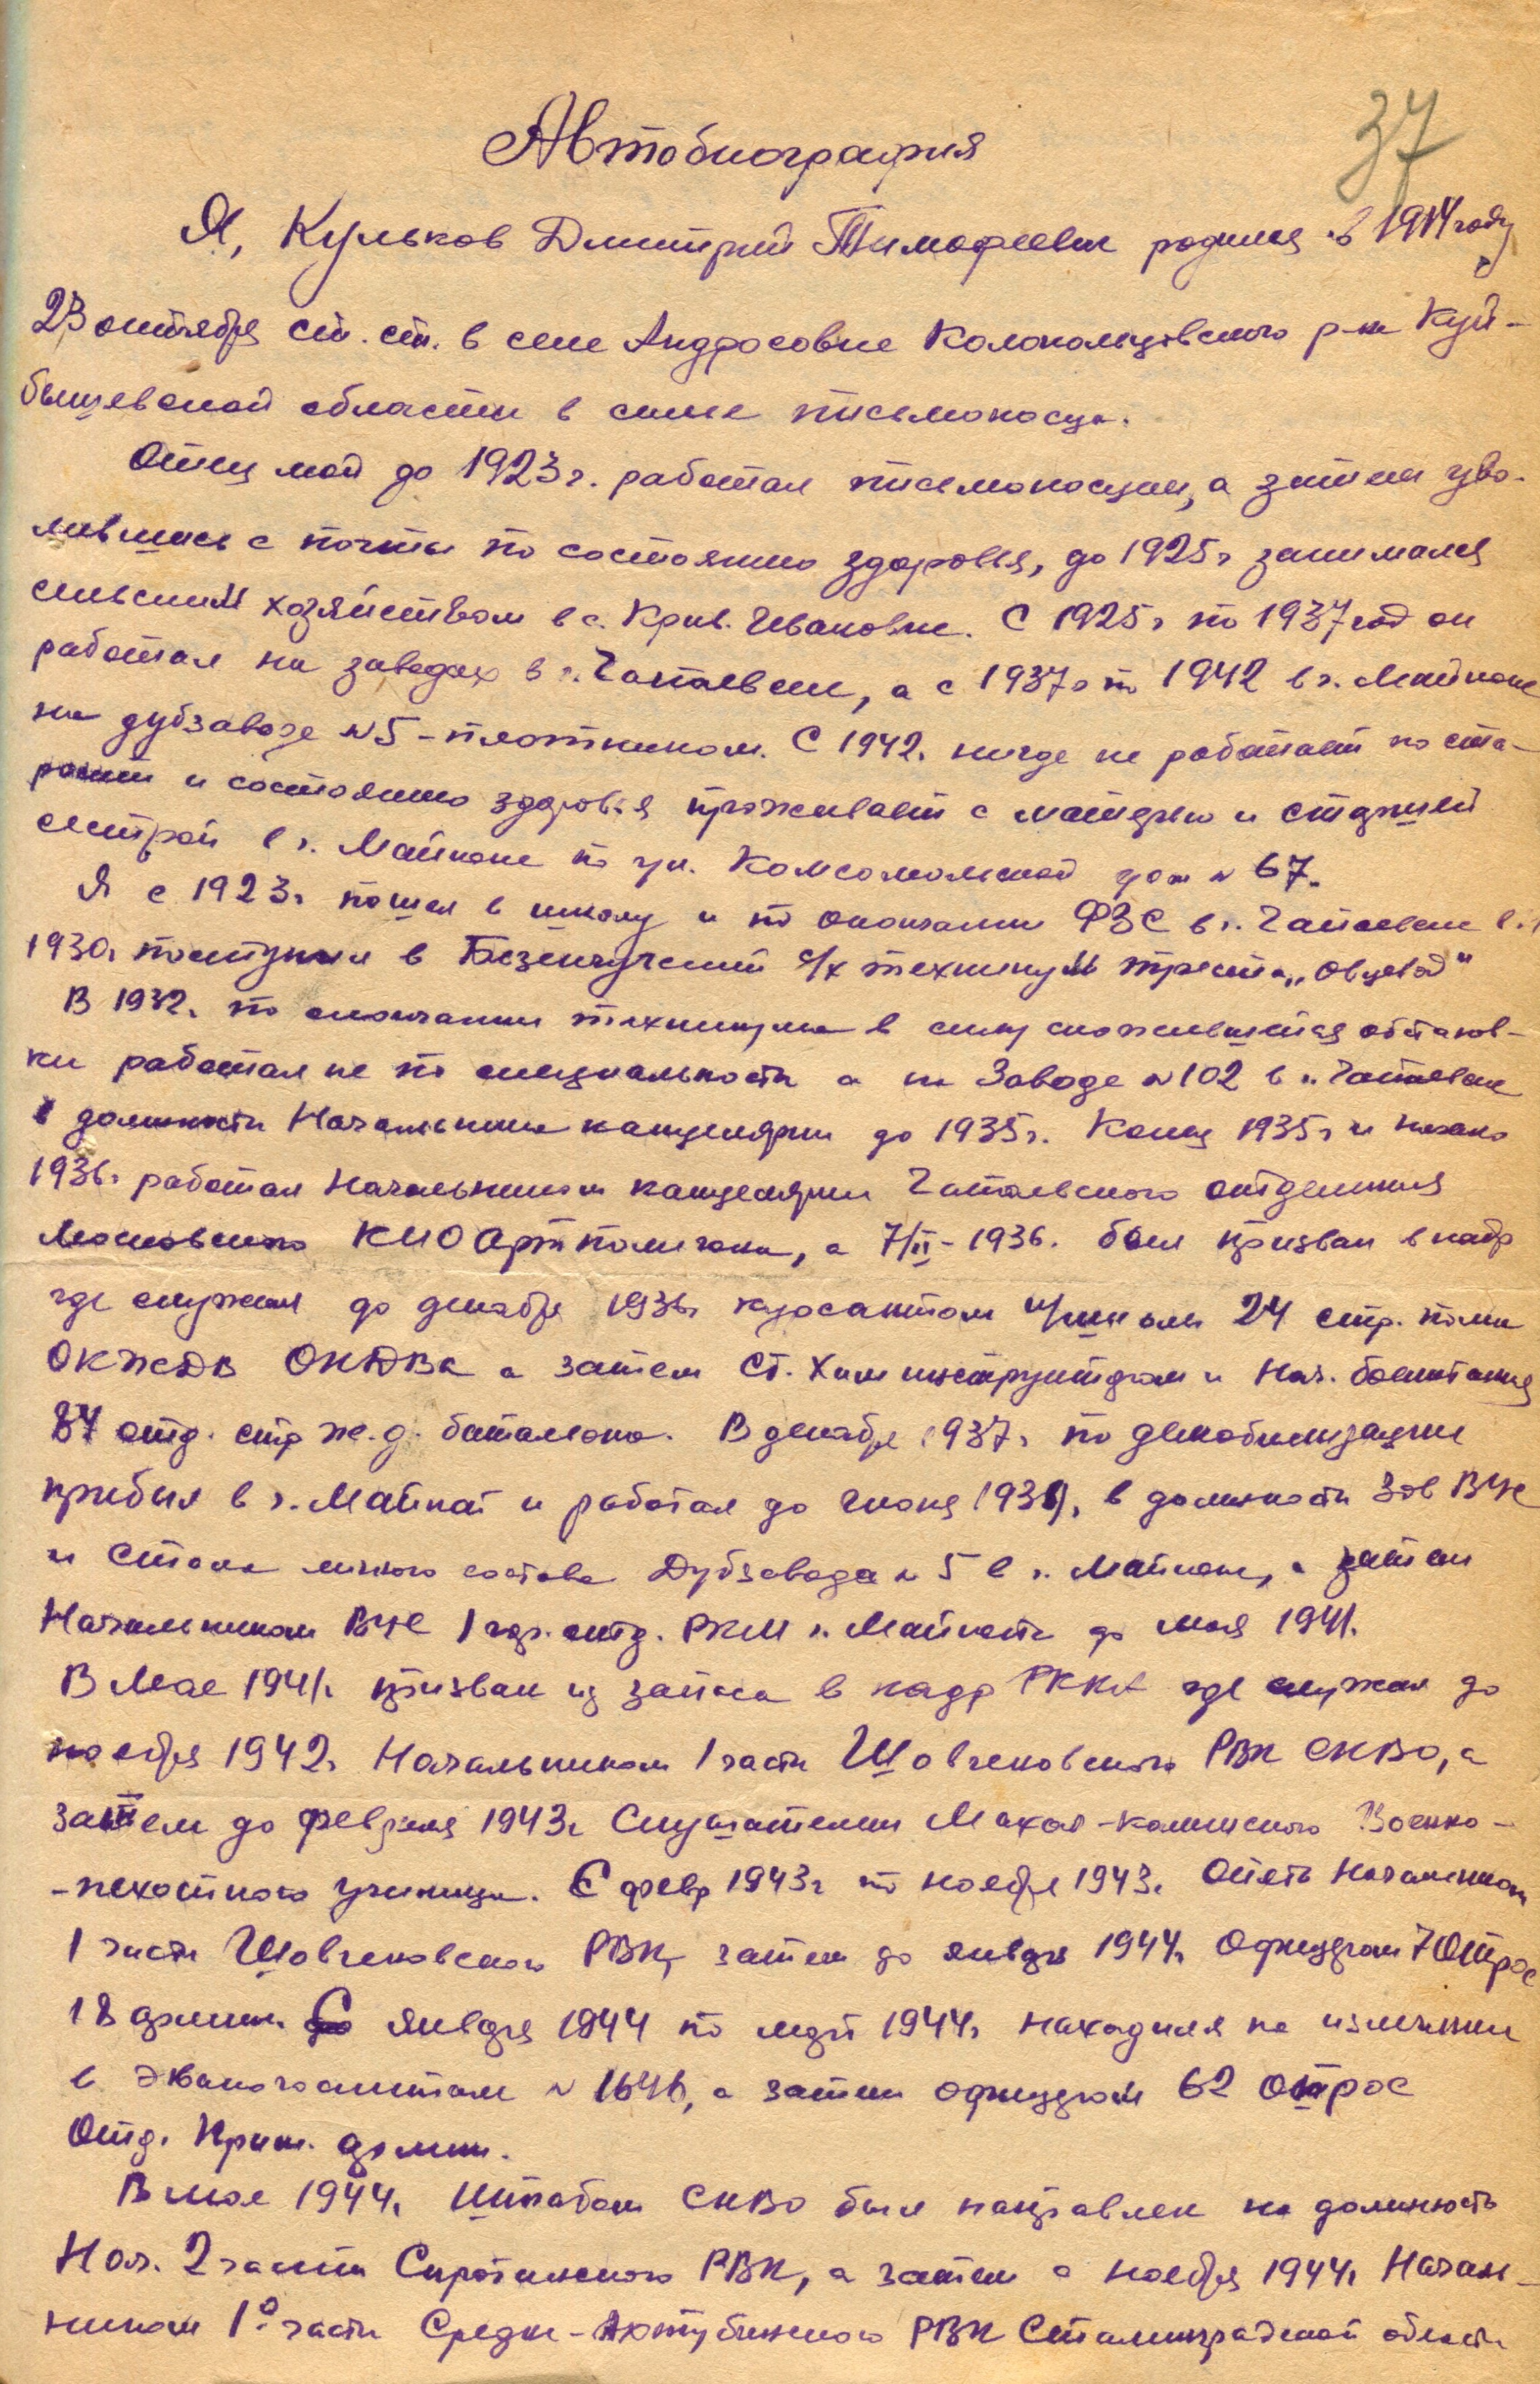 37
Автобиография
Я, Кульков Дмитрий Тимофеевич родился в 1914 году
23 октября ст. ст. в селе Андросовке Колокольцовского р-на Куй-
бышевской области в семье письмоносца.
Отец мой до 1923 г. работал письмоносцем, а затем уво-
лившись с почты по состоянию здоровья, до 1925 г занимался
сельским хозяйством в с. Крив. Ивановке. С 1925 г по 1937 год он
работал на заводах в г. Чапаевске, а с 1937 г по 1942 в г. Майкопе
на дубзаводе №5 - плотником. С 1942 г. нигде не работает по ста-
рости и состоянию здоровья проживает с матерью и старшей
сестрой в г. Майкопе по ул. Комсомольской дом № 67.
Я с 1923 г. пошел в школу и по окончании ФЗС в г. Чапаевске в
1930 г поступил в Безенчукский с/х техникум треста „Овцевод"
В 1932 г. по окончании техникума в силу сложившейся обстанов-
ки работал не по специальности а на Заводе №102 в г. Чапаевске
в должности Начальника канцелярии до 1935 г. Конец 1935 г и начало
1936 г. работал Начальником канцелярии Чапаевского отделения
Московского КИО Артполигона, а 7/II - 1936 г. был призван в кадр
где служил до декабря 1936 г курсантом п/школы 24 стр. полка
ОКЖДВ ОКДВА а затем Ст. Химинструктором и Нач. боепитания
84 отд. стр ж.д. баталиона. В декабре 1937 г. по демобилизации
прибыл в г. Майкоп и работал до июня 1939 г. в должности Зав ВУС
и Стола личного состава Дубзавода № 5 в г. Майкопе, а затем
Начальником ВУС 1 гор. отд. РКМ г. Майкопа до мая 1941 г.
В Мае 1941 г. призван из запаса в кадр РККА где служил до
ноября 1942 г. Начальником 1 части Шовгеновского РВК СКВО, а
затем до февраля 1943 г. Слушателем Махач-калинского Военно-
-пехотного училища. С февр 1943 г по ноябрь 1943 г. Опять Начальником
1 части Шовгеновского РВК, затем до января 1944 г. Офицером 7 Отрос
18 армии. С января 1944 по март 1944 г. находился на излечении
в Эвакогоспитале № 1646, а затем офицером 62 отрос
Отд. Прим. армии.
В мае 1944 г. Штабом СКВО был направлен на должность
Нач. 2 части Сиротинского РВК, а затем с ноября 1944 г. Началь-
ником 1й части Средне-Ахтубинского РВК Сталинградской области